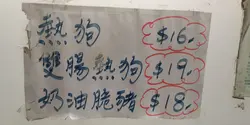 熱狗 $16.
雙腸熱狗 $19.
奶油脆豬 $18.